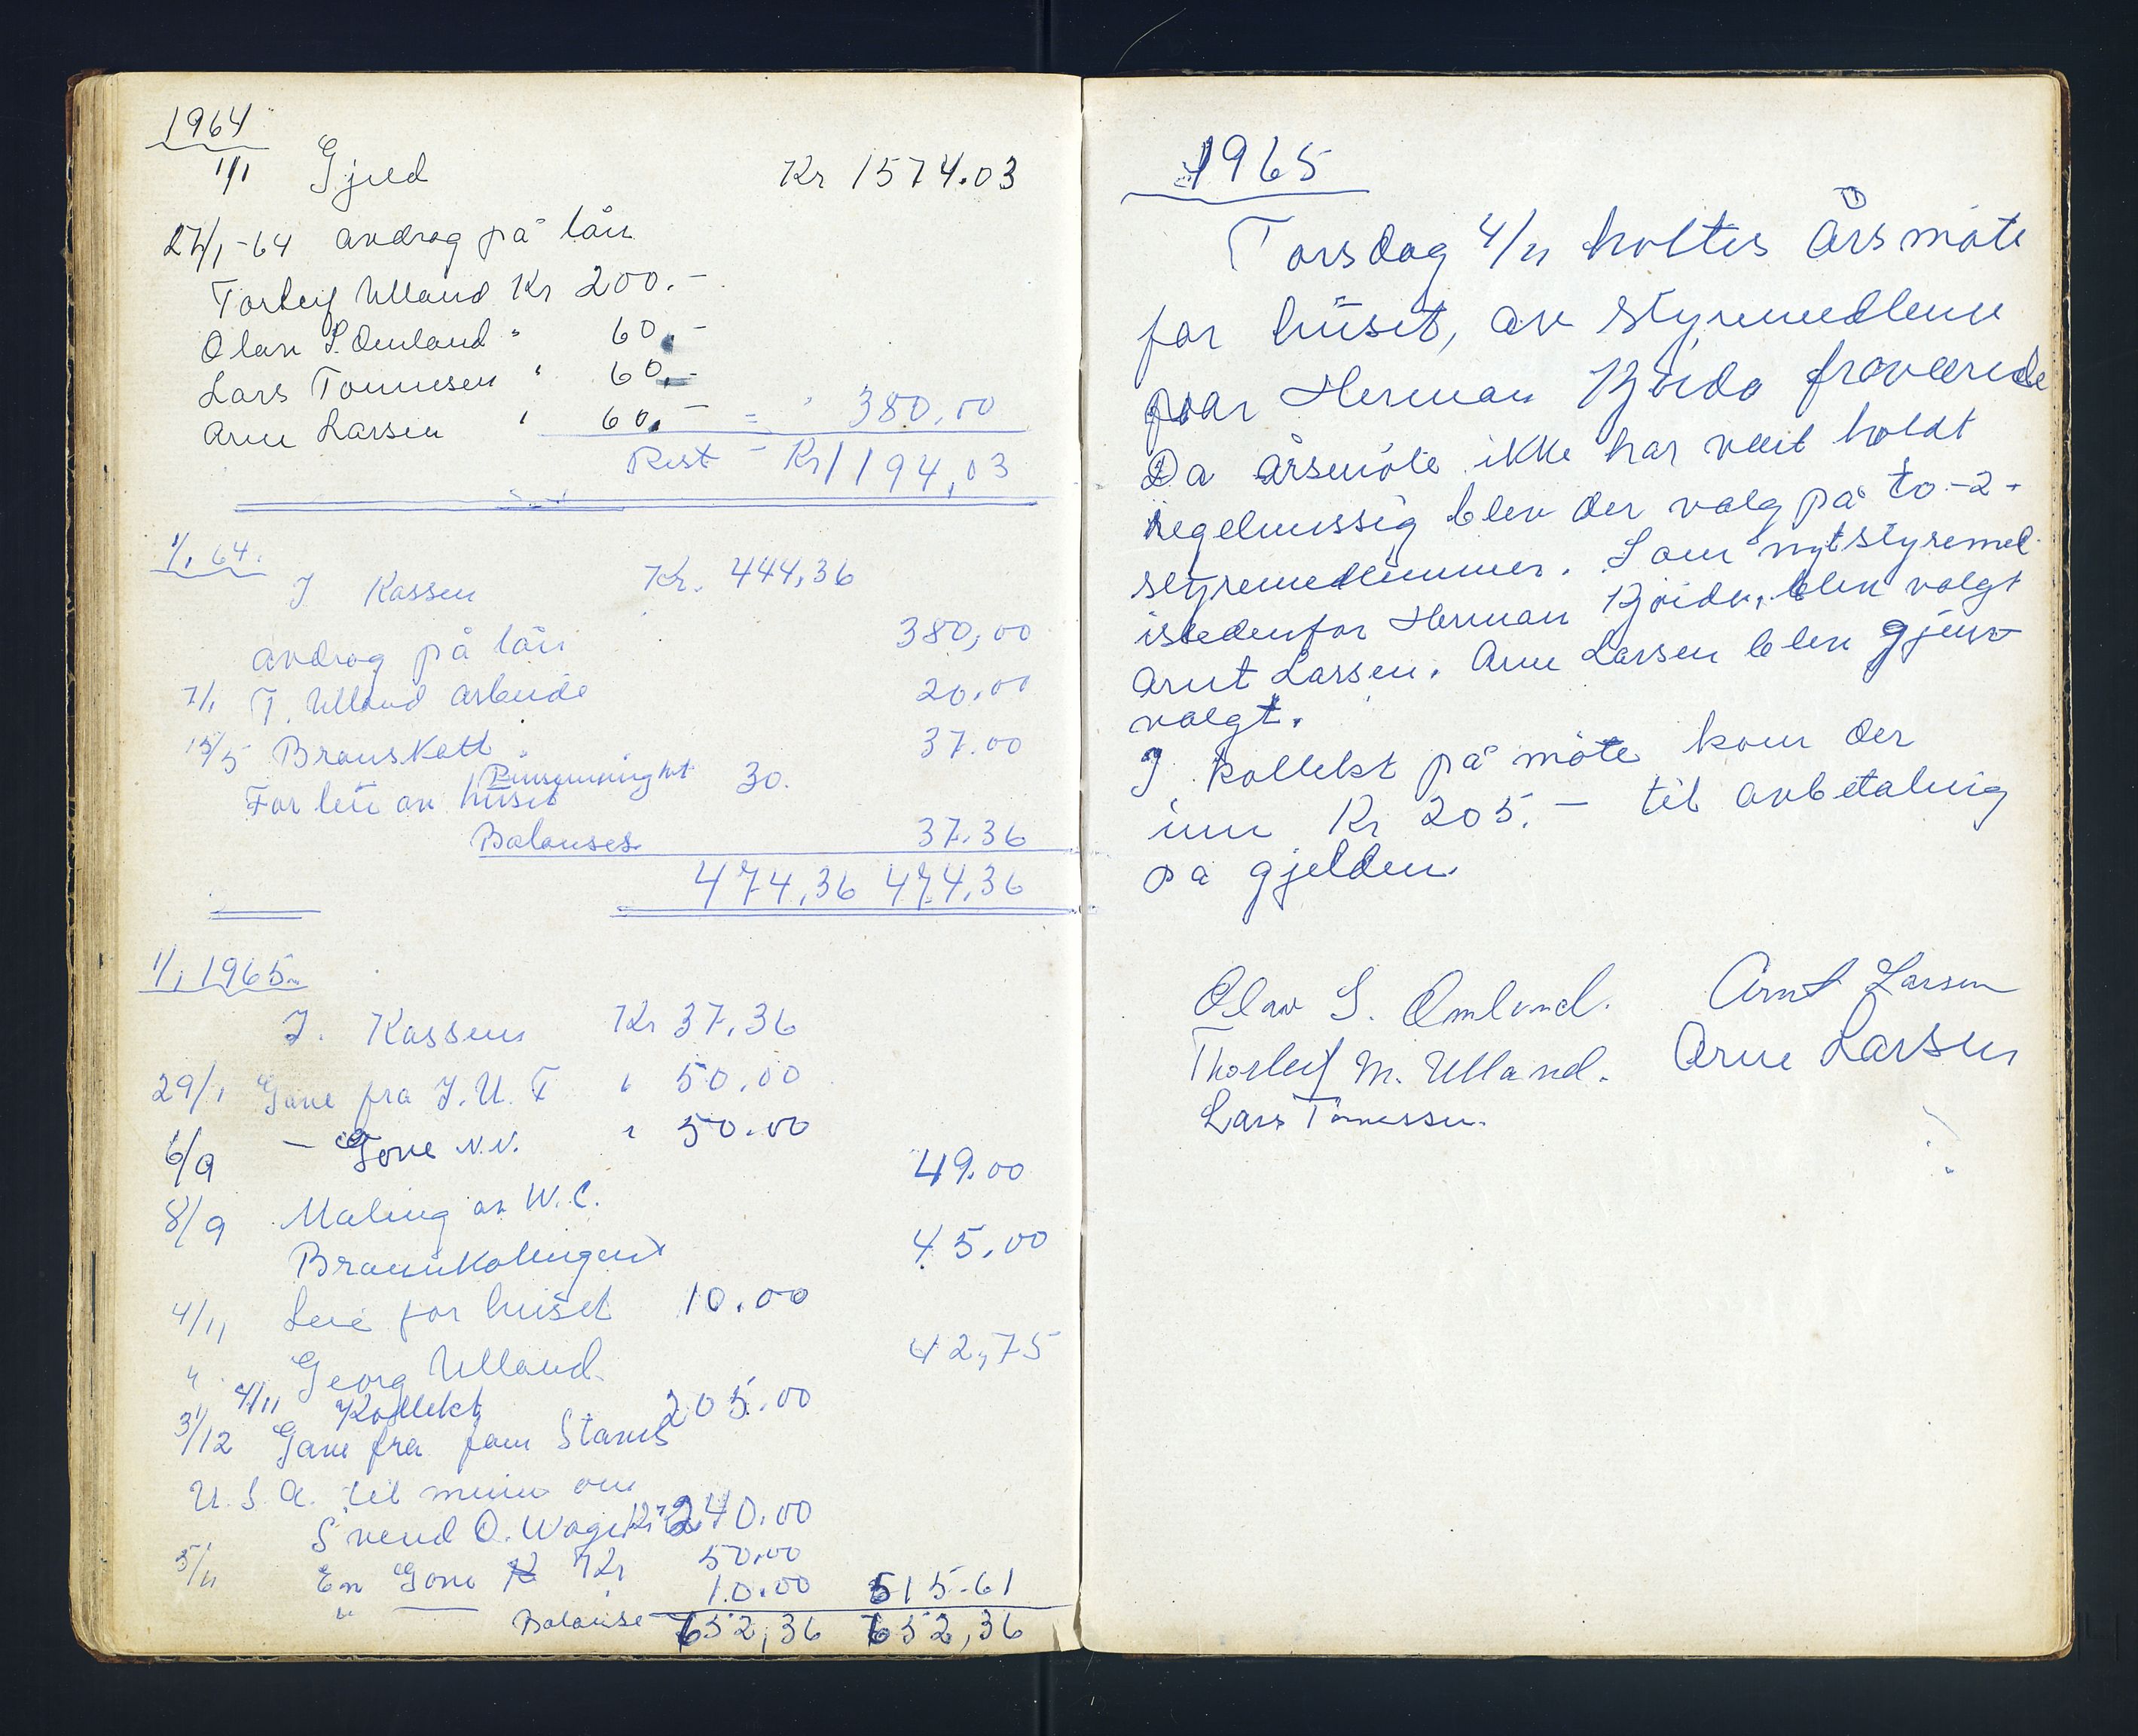 1964
1/1 Gjeld Kr 1574.03
27/1-64 avdrag på lån
Torleif Ulland Kr 200.-
Olav S. Omland " 60.-
Lars Tønnesen " 60.-
Arne Larsen " 60.- = " 380.00
Rest - Kr 1194,03
1/1 64.
I Kassen Kr. 444,36
avdrag på lån 380,00
7/1 T. Ulland arbeide 20.00
15/5 Branskatt 37.00
Pinsemenighet
For leie av huset 30.
Balanses 37.36
474,36 474,36
1/1 1965
I. Kassen Kr 37,36
29/1 Gave fra I.U.F " 50.00
6/9 - Gave N.N. " 50.00
8/9 Maling av W.C. 49.00
Brannkontingent 45.00
4/11 Leie for huset 10.00
" Georg Ulland 42,75
4/11 Kollekt 205.00
31/12 Gave fra fam
U.S.A. til minne om
Svend O. Kr 240.00
5/11 En Gave Kr 50.00
" — 10.00 515-61
Balanse 652,36 652,36
1965
Torsdag 4/11 holtes Årsmøte
for huset, av styremedleme
var Herman fraværende
Da årsmøte ikke har vært holdt
regelmessig blev der valg på to -2-
styremedlemmer. Som nyt styremed-
istedenfor Herman blev valgt
Arnt Larsen. Arne Larsen blev gjenv
valgt.
I kollekt på møte kom der
inn Kr 205.- til avbetaling
på gjelden.
Olav S. Omland. Arnt Larsen
Thorleif M. Ulland. Arne Larsen
Lars Tønnessen.